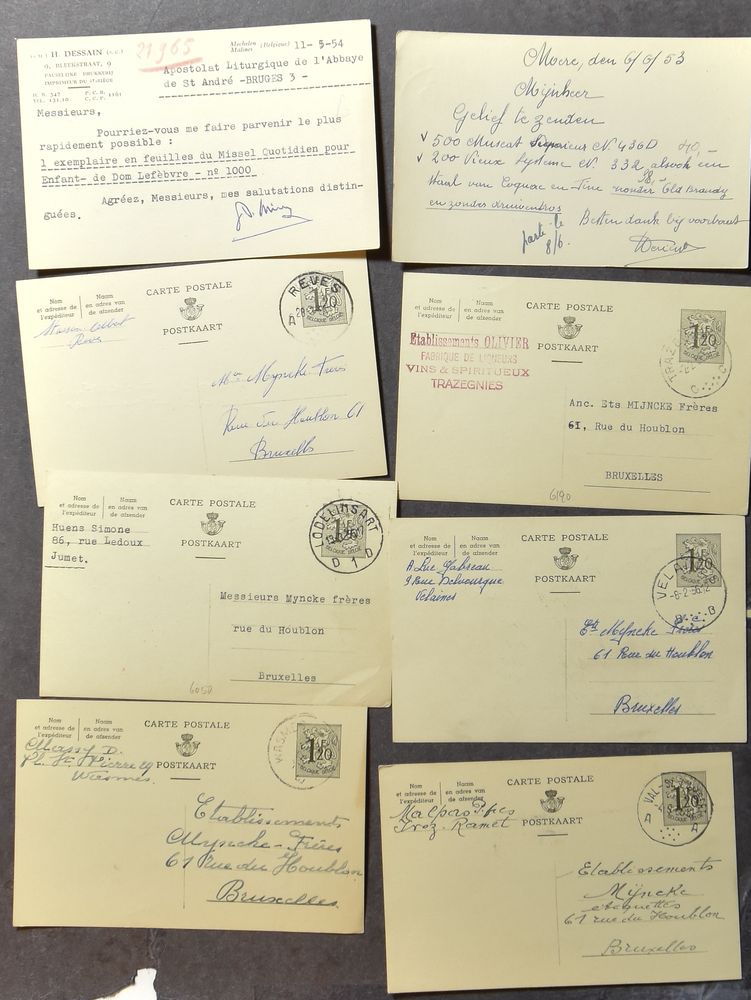 H. DESSAIN
9, BLEEKSTRAAT, 9
PAUSELIJKE DRUKKERIJ
IMPRIMEUR DU ST-SIÈGE
21965
Mechelen (Belgique)
Malines
11- 5-54
Apostolat Liturgique de l'Abbaye
de St André -BRUGES 3 -
Messieurs,
Pourriez-vous me faire parvenir le plus
rapidement possible :
1 exemplaire en feuilles du Missel Quotidien pour
Enfant- de Dom Lefèbvre - nº 1000
Agréez, Messieurs, mes salutations distin-
guées.
Moere, den 6/6/53
Mijnheer
Gelief te zenden
√ 500 Muscat Superieur CN 436D 40,-
√ 200 Vieux Système CN 332 alsook een
staal van Cognac en Fine zonder Old Brandy
en zonder druiventros
Besten dank bij voorbaat
parti le
8/6.
Nom
et adresse de
l'expéditeur
Naam
en adres van
de afzender
CARTE POSTALE
POSTKAART
REVES
A
1F20
BELGIQUE BELGIË
Maison
Rèves
Myncke Frères
Rue du Houblon 61
Bruxelles
Nom
et adresse de
l'expéditeur
Naam
en adres van
de afzender
CARTE POSTALE
POSTKAART
1F20
BELGIQUE BELGIË
C C
Etablissements OLIVIER
FABRIQUE DE LIQUEURS
VINS & SPIRITUEUX
TRAZEGNIES
Anc. Ets MIJNCKE Frères
61, Rue du Houblon
BRUXELLES
6190
Nom
et adresse de
l'expéditeur
Naam
en adres van
de afzender
CARTE POSTALE
POSTKAART
LODELINSART
D 1 D
BELGIQUE BELGIË
Huens Simone
86, rue Ledoux
Jumet.
Messieurs Myncke frères
rue du Houblon
Bruxelles
6050
Nom
et adresse de
l'expéditeur
Naam
en adres van
de afzender
CARTE POSTALE
POSTKAART
1F20
-6-2-56
B B
Velaines
Ets Myncke Frères
61 Rue du Houblon
Bruxelles
Nom
et adresse de
l'expéditeur
Naam
en adres van
de afzender
CARTE POSTALE
POSTKAART
1F20
BELGIQUE BELGIË
Massy D.
Pl. St Pierre
Wasmes.
Etablissements
Myncke-Frères
61 Rue du Houblon
Bruxelles
Nom
et adresse de
l'expéditeur
Naam
en adres van
de afzender
CARTE POSTALE
POSTKAART
A A
1F20
Ivoz-Ramet
Etablissements
Mijncke
etiquettes
61 rue du Houblon
Bruxelles